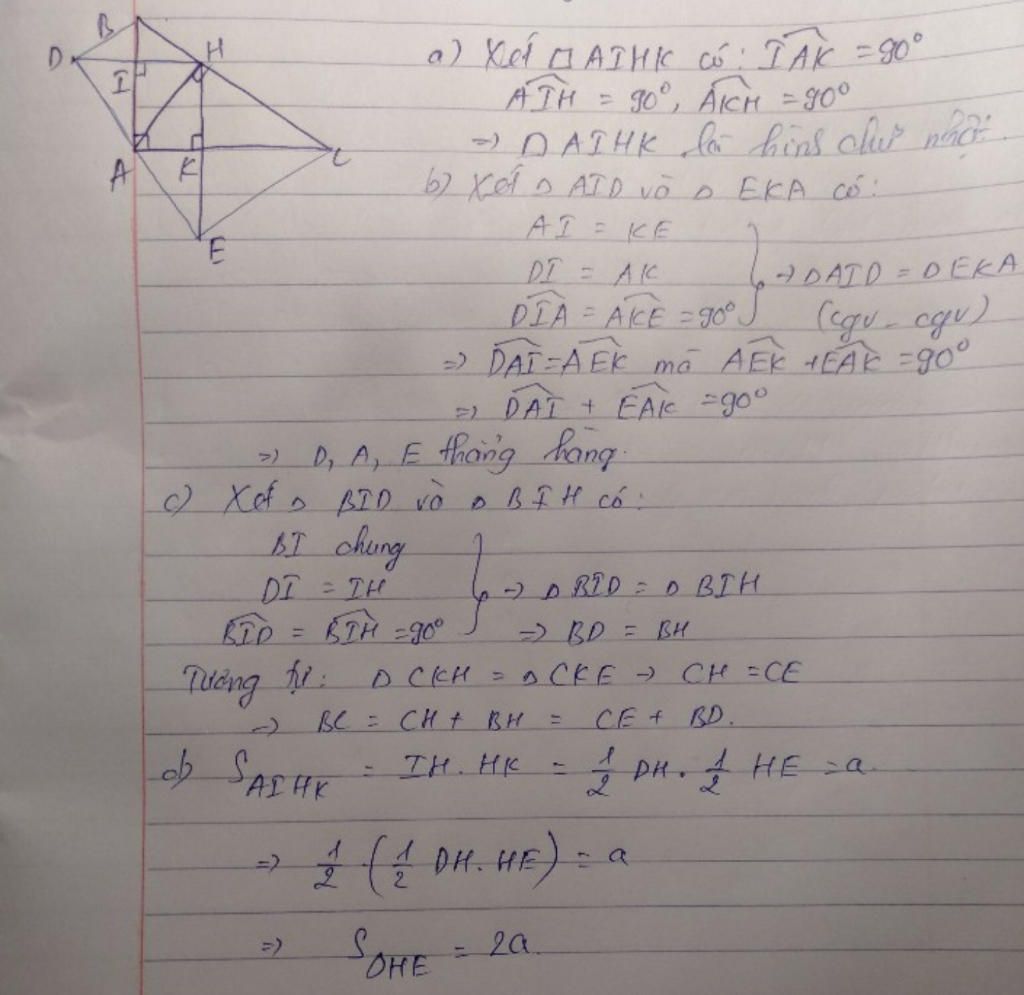 B
D
H
I
A
K
C
E
a) Xét □ AIHK có: \widehat{IAK} = 90°
\widehat{AIH} = 90°, \widehat{AKH} = 90°
=> □ AIHK là hình chữ nhật.
b) Xét Δ AID và Δ EKA có:
AI = KE
DI = AK
\widehat{DIA} = \widehat{AKE} = 90°
} → Δ AID = Δ EKA
(cgv - cgv)
=> \widehat{DAI} = \widehat{AEK} mà \widehat{AEK} + \widehat{EAK} = 90°
=> \widehat{DAI} + \widehat{EAK} = 90°
=> D, A, E thẳng hàng.
c) Xét Δ BID và Δ BIH có:
BI chung
DI = IH
\widehat{BID} = \widehat{BIH} = 90°
} → Δ BID = Δ BIH
=> BD = BH
Tương tự: Δ CKH = Δ CKE → CH = CE
=> BC = CH + BH = CE + BD.
d) S_{AIHK} = IH. HK = \frac{1}{2} DH. \frac{1}{2} HE = a.
=> \frac{1}{2} . (\frac{1}{2} DH. HE) = a
=> S_{DHE} = 2a.